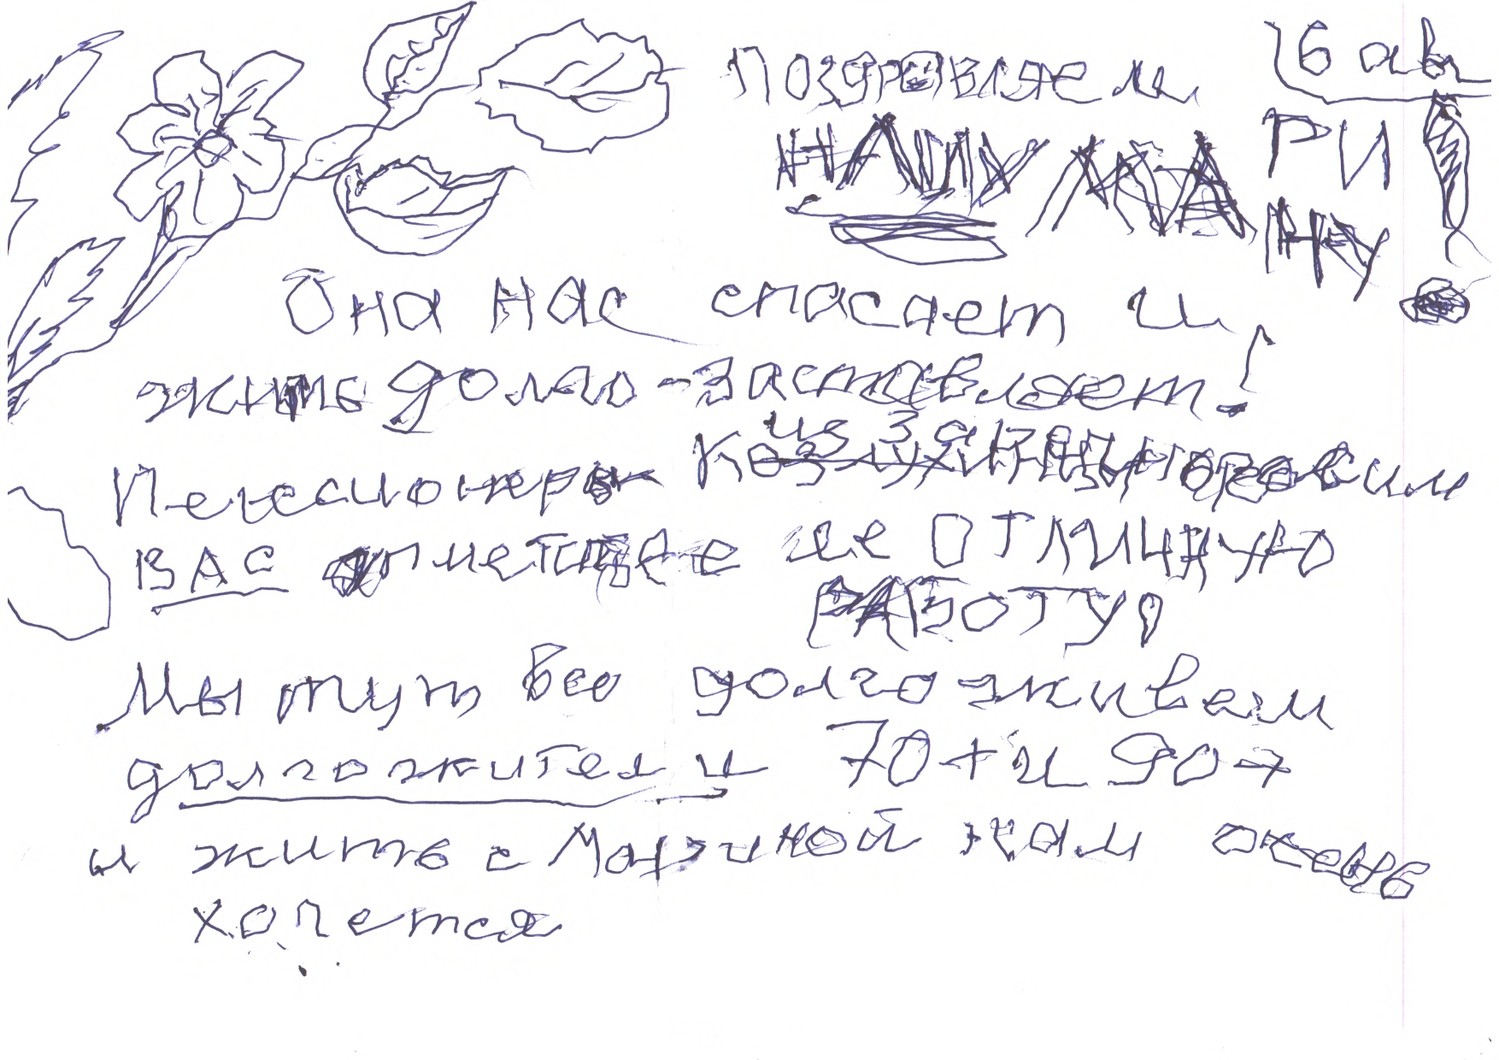 Поздравляем 16 авг
НАШУ МАРИНУ!
Она нас спасает и
жить долго - заставляет!
Пенсионеры просим
ВАС отметьте ее ОТЛИЧНУЮ
РАБОТУ!
Мы тут все долго живем
долгожители 70+ и 90+
и жить с Мариной нам очень
хочется